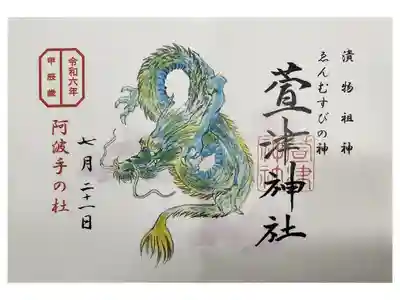 漬物祖神
ゑんむすびの神
萱津神社
令和六年
甲辰歳
七月二十一日
阿波手の杜